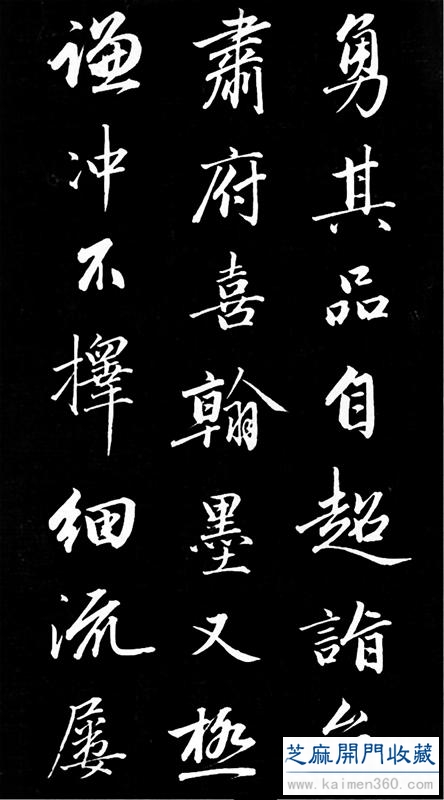 勇其品自超詣
肅府喜翰墨又極
謙冲不擇細流屢
芝麻開門收藏
www.kaimen360.com